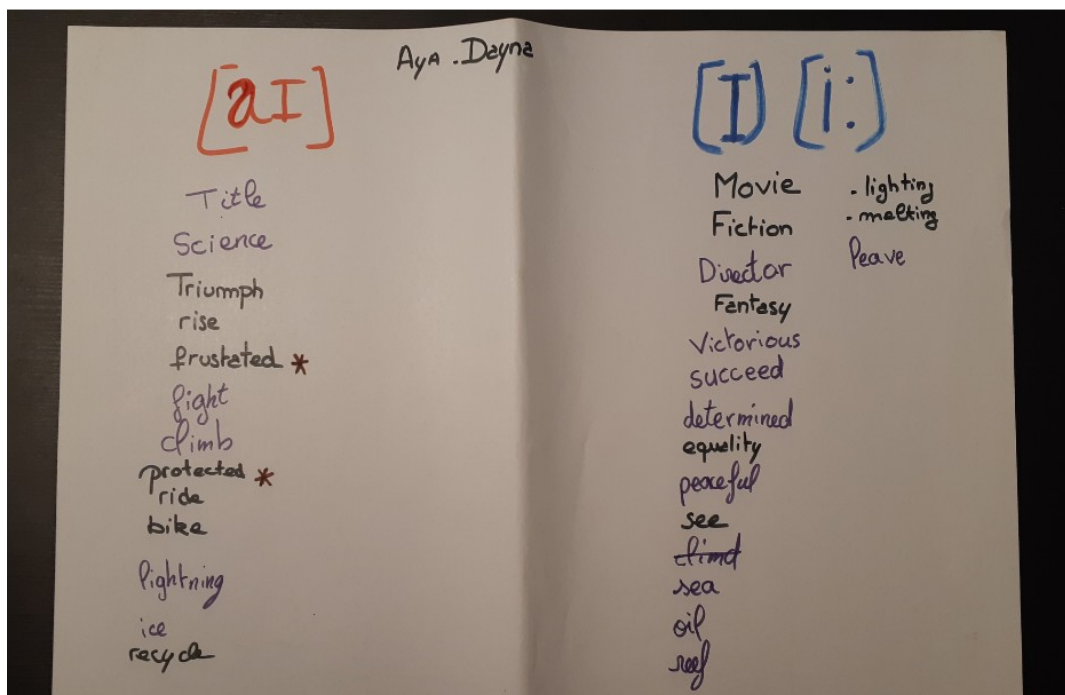 Aya . Dayna
[aI]
Title
Science
Triumph
rise
frustated *
fight
climb
protected *
ride
bike
lightning
ice
recycle
[I] [i:]
Movie
Fiction
Director
Fantasy
Victorious
succeed
determined
equality
peaceful
see
climd
sea
oil
reef
- lighting
- melting
leave